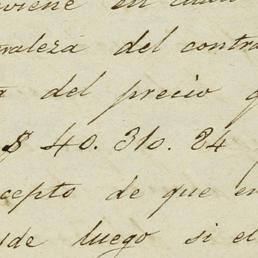 viene en cada
uraleza del contra
a del precio q
$ 40. 310. 24
cepto de que en
sde luego si el